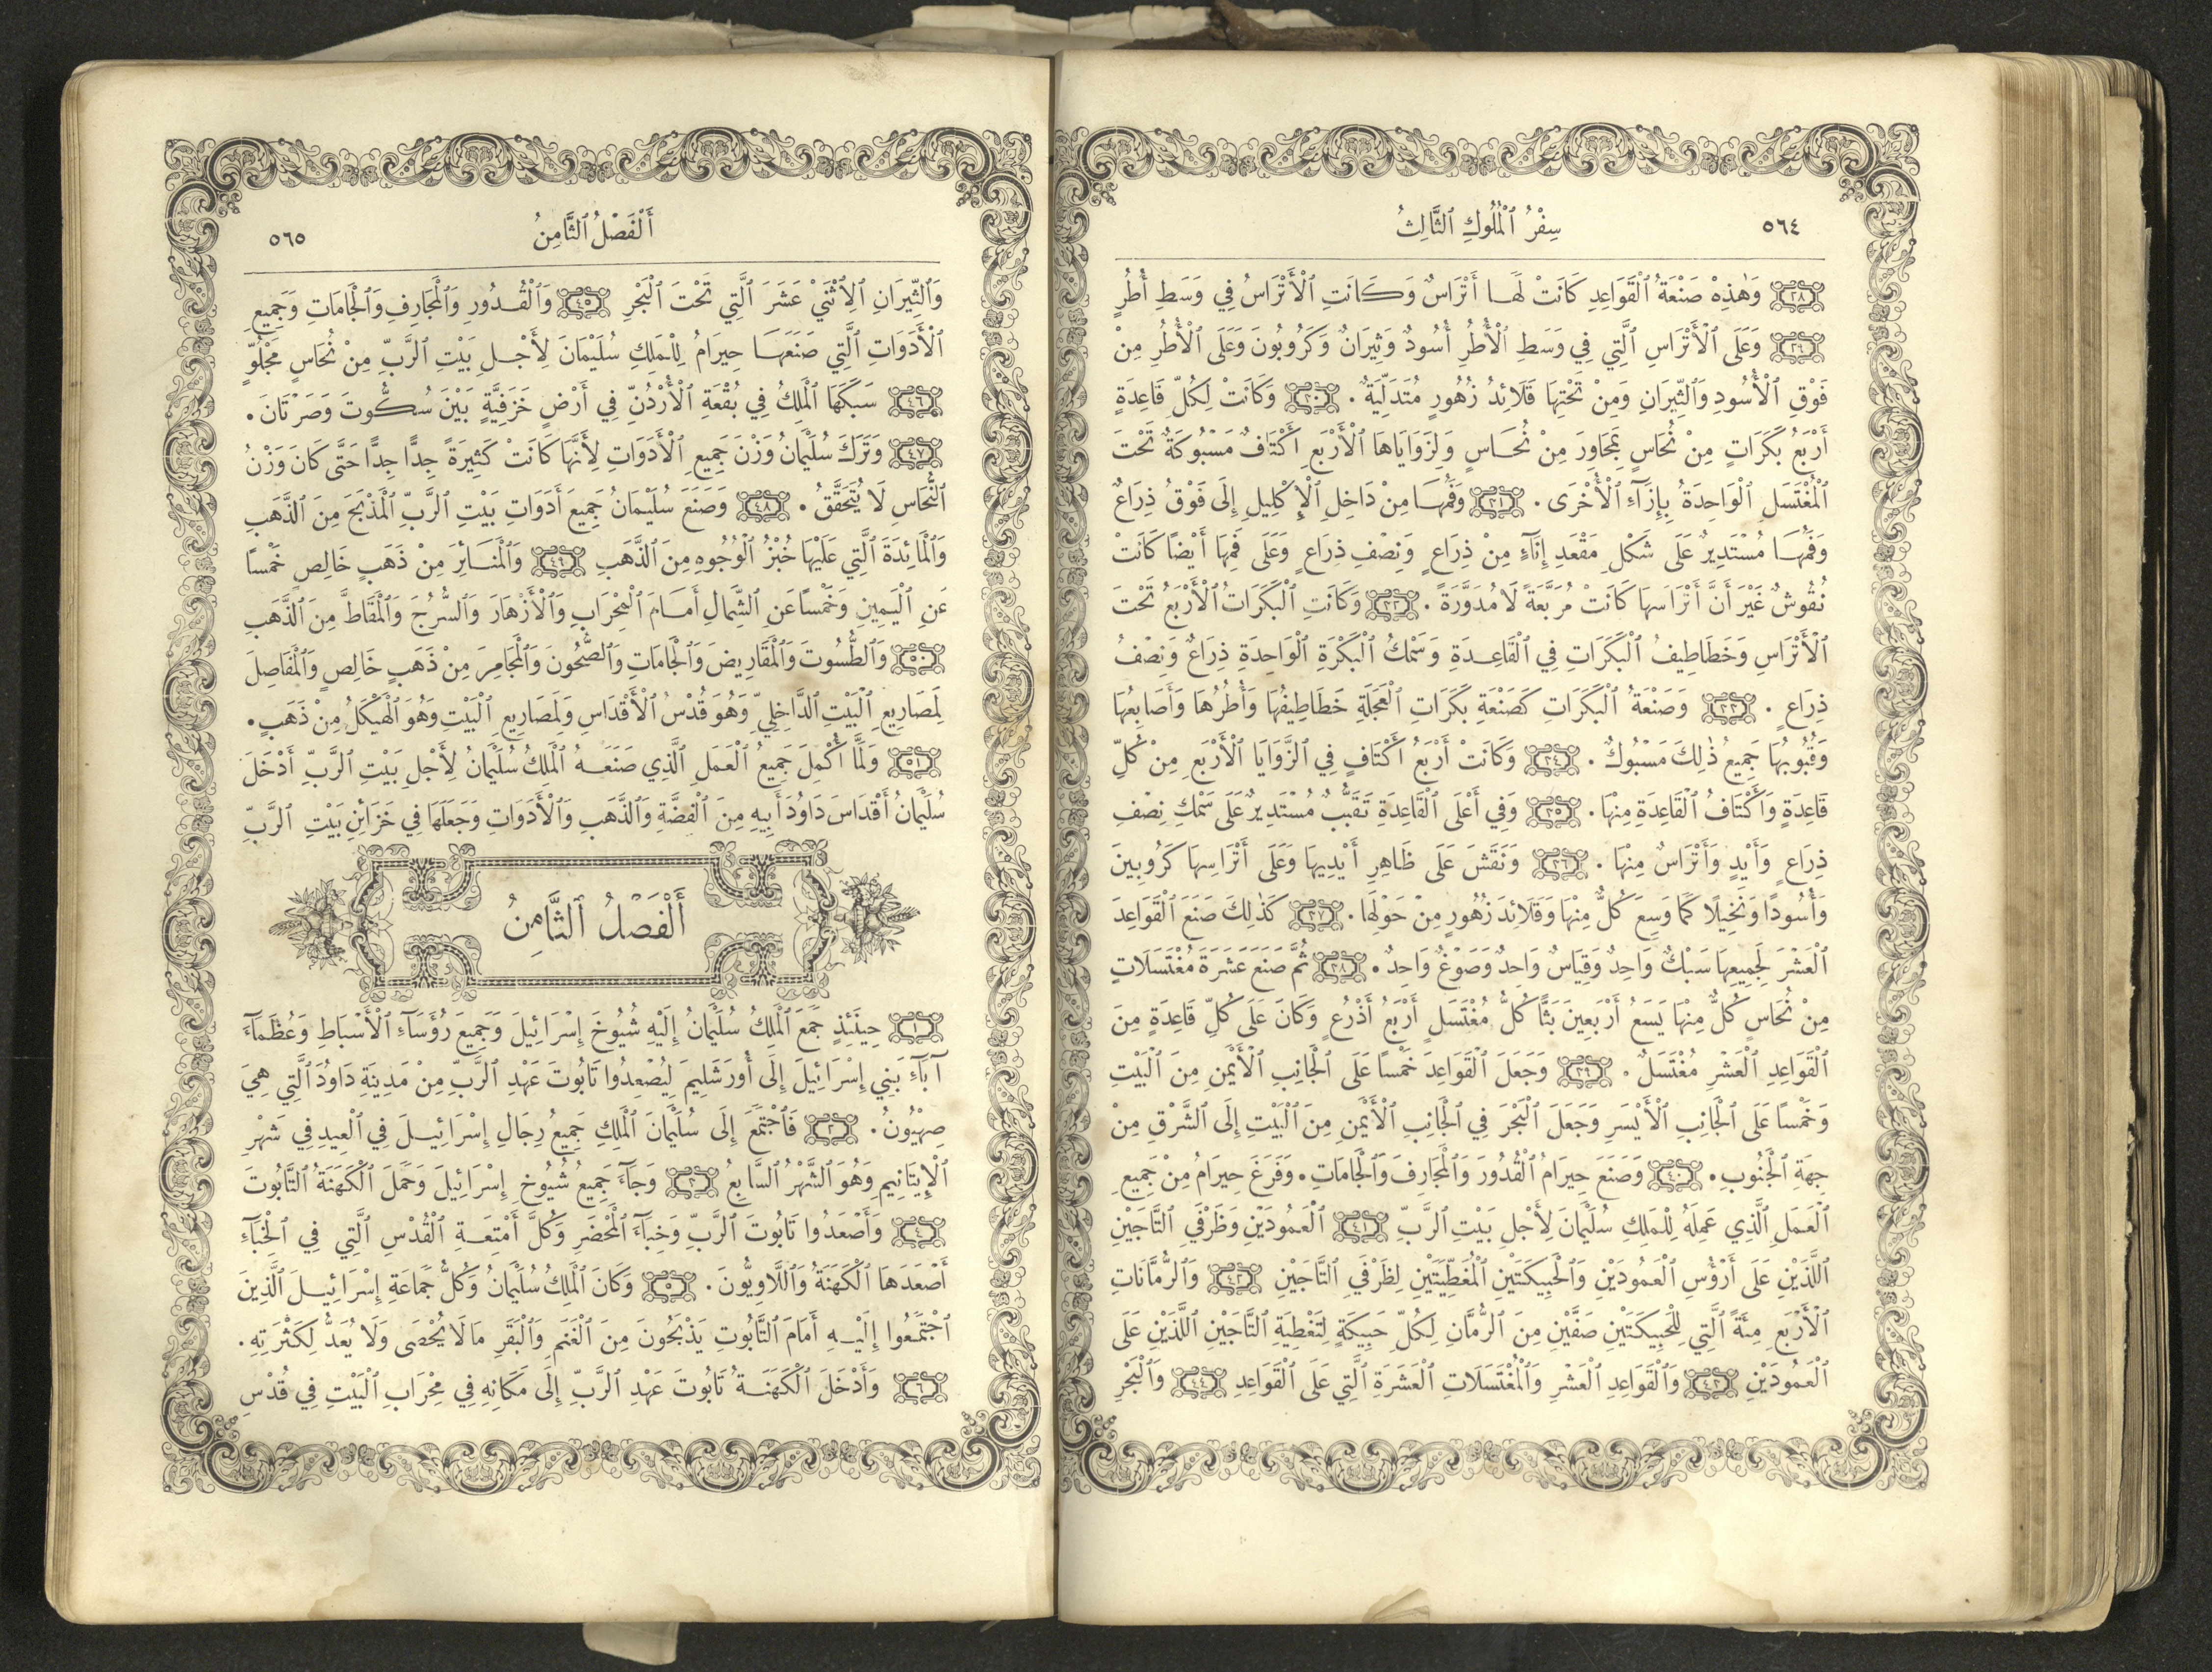 ٥٦٤
سِفْرُ ٱلْمُلُوكِ ٱلثَّالِثُ
٢٨ وَهٰذِهِ صَنْعَةُ ٱلْقَوَاعِدِ كَانَتْ لَهَا أَتْرَاسٌ وَكَانَتِ ٱلْأَتْرَاسُ فِي وَسَطِ أُطُرٍ
٢٩ وَعَلَى ٱلْأَتْرَاسِ ٱلَّتِي فِي وَسَطِ ٱلْأُطُرِ أُسُودٌ وَثِيرَانٌ وَكَرُوبُونَ وَعَلَى ٱلْأُطُرِ مِنْ
فَوْقِ ٱلْأُسُودِ وَٱلثِّيرَانِ وَمِنْ تَحْتِهَا قَلَائِدُ زُهُورٍ مُتَدَلِّيَةٌ. ٣٠ وَكَانَتْ لِكُلِّ قَاعِدَةٍ
أَرْبَعُ بَكَرَاتٍ مِنْ نُحَاسٍ بِمَحَاوِرَ مِنْ نُحَاسٍ وَلِزَوَايَاهَا ٱلْأَرْبَعِ أَكْتَافٌ مَسْبُوكَةٌ تَحْتَ
ٱلْمُغْتَسَلِ ٱلْوَاحِدَةُ بِإِزَآءِ ٱلْأُخْرَى. ٣١ وَفَمُهَا مِنْ دَاخِلِ ٱلْإِكْلِيلِ إِلَى فَوْقُ ذِرَاعٌ
وَفَمُهَا مُسْتَدِيرٌ عَلَى شَكْلِ مَقْعَدِ إِنَآءٍ مِنْ ذِرَاعٍ وَنِصْفِ ذِرَاعٍ وَعَلَى فَمِهَا أَيْضًا كَانَتْ
نُقُوشٌ غَيْرَ أَنَّ أَتْرَاسَهَا كَانَتْ مُرَبَّعَةً لَا مُدَوَّرَةً. ٣٢ وَكَانَتِ ٱلْبَكَرَاتُ ٱلْأَرْبَعُ تَحْتَ
ٱلْأَتْرَاسِ وَخَطَاطِيفُ ٱلْبَكَرَاتِ فِي ٱلْقَاعِدَةِ وَسَمْكُ ٱلْبَكْرَةِ ٱلْوَاحِدَةِ ذِرَاعٌ وَنِصْفُ
ذِرَاعٍ. ٣٣ وَصَنْعَةُ ٱلْبَكَرَاتِ كَصَنْعَةِ بَكَرَاتِ ٱلْعَجَلَةِ خَطَاطِيفُهَا وَأُطُرُهَا وَأَصَابِعُهَا
وَقُبُوبُهَا جَمِيعُ ذٰلِكَ مَسْبُوكٌ. ٣٤ وَكَانَتْ أَرْبَعُ أَكْتَافٍ فِي ٱلزَّوَايَا ٱلْأَرْبَعِ مِنْ كُلِّ
قَاعِدَةٍ وَأَكْتَافُ ٱلْقَاعِدَةِ مِنْهَا. ٣٥ وَفِي أَعْلَى ٱلْقَاعِدَةِ تَقَبُّبٌ مُسْتَدِيرٌ عَلَى سَمْكِ نِصْفِ
ذِرَاعٍ وَأَيْدٍ وَأَتْرَاسٌ مِنْهَا. ٣٦ وَنَقَشَ عَلَى ظَاهِرِ أَيْدِيهَا وَعَلَى أَتْرَاسِهَا كَرُوبِينَ
وَأُسُودًا وَنَخِيلًا كَمَا وَسِعَ كُلٌّ مِنْهَا وَقَلَائِدَ زُهُورٍ مِنْ حَوْلِهَا. ٣٧ كَذٰلِكَ صَنَعَ ٱلْقَوَاعِدَ
ٱلْعَشْرَ لِجَمِيعِهَا سَبْكٌ وَاحِدٌ وَقِيَاسٌ وَاحِدٌ وَصَوْغٌ وَاحِدٌ. ٣٨ ثُمَّ صَنَعَ عَشَرَةَ مُغْتَسَلَاتٍ
مِنْ نُحَاسٍ كُلٌّ مِنْهَا يَسَعُ أَرْبَعِينَ بَثًّا كُلُّ مُغْتَسَلٍ أَرْبَعُ أَذْرُعٍ وَكَانَ عَلَى كُلِّ قَاعِدَةٍ مِنَ
ٱلْقَوَاعِدِ ٱلْعَشْرِ مُغْتَسَلٌ. ٣٩ وَجَعَلَ ٱلْقَوَاعِدَ خَمْسًا عَلَى ٱلْجَانِبِ ٱلْأَيْمَنِ مِنَ ٱلْبَيْتِ
وَخَمْسًا عَلَى ٱلْجَانِبِ ٱلْأَيْسَرِ وَجَعَلَ ٱلْبَحْرَ فِي ٱلْجَانِبِ ٱلْأَيْمَنِ مِنَ ٱلْبَيْتِ إِلَى ٱلشَّرْقِ مِنْ
جِهَةِ ٱلْجَنُوبِ. ٤٠ وَصَنَعَ حِيرَامُ ٱلْقُدُورَ وَٱلْمَجَارِفَ وَٱلْجَامَاتِ. وَفَرَغَ حِيرَامُ مِنْ جَمِيعِ
ٱلْعَمَلِ ٱلَّذِي عَمِلَهُ لِلْمَلِكِ سُلَيْمَانَ لِأَجْلِ بَيْتِ ٱلرَّبِّ ٤١ ٱلْعَمُودَيْنِ وَظَرْفَيِ ٱلتَّاجَيْنِ
ٱللَّذَيْنِ عَلَى أَرْؤُسِ ٱلْعَمُودَيْنِ وَٱلْحَبِيكَتَيْنِ ٱلْمُغَطِّيَتَيْنِ لِظَرْفَيِ ٱلتَّاجَيْنِ ٤٢ وَٱلرُّمَّانَاتِ
ٱلْأَرْبَعِ مِئَةً ٱلَّتِي لِلْحَبِيكَتَيْنِ صَفَّيْنِ مِنَ ٱلرُّمَّانِ لِكُلِّ حَبِيكَةٍ لِتَغْطِيَةِ ٱلتَّاجَيْنِ ٱللَّذَيْنِ عَلَى
ٱلْعَمُودَيْنِ ٤٣ وَٱلْقَوَاعِدِ ٱلْعَشْرِ وَٱلْمُغْتَسَلَاتِ ٱلْعَشَرَةِ ٱلَّتِي عَلَى ٱلْقَوَاعِدِ ٤٤ وَٱلْبَحْرِ
أَلْفَصْلُ ٱلثَّامِنُ
٥٦٥
وَٱلثِّيرَانِ ٱلِٱثْنَيْ عَشَرَ ٱلَّتِي تَحْتَ ٱلْبَحْرِ ٤٥ وَٱلْقُدُورِ وَٱلْمَجَارِفِ وَٱلْجَامَاتِ وَجَمِيعِ
ٱلْأَدَوَاتِ ٱلَّتِي صَنَعَهَا حِيرَامُ لِلْمَلِكِ سُلَيْمَانَ لِأَجْلِ بَيْتِ ٱلرَّبِّ مِنْ نُحَاسٍ مَجْلُوٍّ
٤٦ سَبَكَهَا ٱلْمَلِكُ فِي بُقْعَةِ ٱلْأُرْدُنِّ فِي أَرْضٍ خَزَفِيَّةٍ بَيْنَ سُكُّوتَ وَصَرْتَانَ.
٤٧ وَتَرَكَ سُلَيْمَانُ وَزْنَ جَمِيعِ ٱلْأَدَوَاتِ لِأَنَّهَا كَانَتْ كَثِيرَةً جِدًّا جِدًّا حَتَّى كَانَ وَزْنُ
ٱلنُّحَاسِ لَا يُتَحَقَّقُ. ٤٨ وَصَنَعَ سُلَيْمَانُ جَمِيعَ أَدَوَاتِ بَيْتِ ٱلرَّبِّ ٱلْمَذْبَحَ مِنَ ٱلذَّهَبِ
وَٱلْمَائِدَةَ ٱلَّتِي عَلَيْهَا خُبْزُ ٱلْوُجُوهِ مِنَ ٱلذَّهَبِ ٤٩ وَٱلْمَنَائِرَ مِنْ ذَهَبٍ خَالِصٍ خَمْسًا
عَنِ ٱلْيَمِينِ وَخَمْسًا عَنِ ٱلشِّمَالِ أَمَامَ ٱلْمِحْرَابِ وَٱلْأَزْهَارَ وَٱلسُّرُجَ وَٱلْمَقَاطَّ مِنَ ٱلذَّهَبِ
٥٠ وَٱلطُّسُوتَ وَٱلْمَقَارِيضَ وَٱلْجَامَاتِ وَٱلصُّحُونَ وَٱلْمَجَامِرَ مِنْ ذَهَبٍ خَالِصٍ وَٱلْمَفَاصِلَ
لِمَصَارِيعِ ٱلْبَيْتِ ٱلدَّاخِلِيِّ وَهُوَ قُدْسُ ٱلْأَقْدَاسِ وَلِمَصَارِيعِ ٱلْبَيْتِ وَهُوَ ٱلْهَيْكَلُ مِنْ ذَهَبٍ.
٥١ وَلَمَّا أُكْمِلَ جَمِيعُ ٱلْعَمَلِ ٱلَّذِي صَنَعَهُ ٱلْمَلِكُ سُلَيْمَانُ لِأَجْلِ بَيْتِ ٱلرَّبِّ أَدْخَلَ
سُلَيْمَانُ أَقْدَاسَ دَاوُدَ أَبِيهِ مِنَ ٱلْفِضَّةِ وَٱلذَّهَبِ وَٱلْأَدَوَاتِ وَجَعَلَهَا فِي خَزَائِنِ بَيْتِ ٱلرَّبِّ
أَلْفَصْلُ ٱلثَّامِنُ
١ حِينَئِذٍ جَمَعَ ٱلْمَلِكُ سُلَيْمَانُ إِلَيْهِ شُيُوخَ إِسْرَائِيلَ وَجَمِيعَ رُؤَسَآءِ ٱلْأَسْبَاطِ وَعُظَمَآءَ
آبَآءِ بَنِي إِسْرَائِيلَ إِلَى أُورَشَلِيمَ لِيُصْعِدُوا تَابُوتَ عَهْدِ ٱلرَّبِّ مِنْ مَدِينَةِ دَاوُدَ ٱلَّتِي هِيَ
صِهْيُونُ. ٢ فَٱجْتَمَعَ إِلَى سُلَيْمَانَ ٱلْمَلِكِ جَمِيعُ رِجَالِ إِسْرَائِيلَ فِي ٱلْعِيدِ فِي شَهْرِ
ٱلْإِيتَانِيمِ وَهُوَ ٱلشَّهْرُ ٱلسَّابِعُ ٣ وَجَآءَ جَمِيعُ شُيُوخِ إِسْرَائِيلَ وَحَمَلَ ٱلْكَهَنَةُ ٱلتَّابُوتَ
٤ وَأَصْعَدُوا تَابُوتَ ٱلرَّبِّ وَخِبَآءَ ٱلْمَحْضَرِ وَكُلَّ أَمْتِعَةِ ٱلْقُدْسِ ٱلَّتِي فِي ٱلْخِبَآءِ
أَصْعَدَهَا ٱلْكَهَنَةُ وَٱللَّاوِيُّونَ. ٥ وَكَانَ ٱلْمَلِكُ سُلَيْمَانُ وَكُلُّ جَمَاعَةِ إِسْرَائِيلَ ٱلَّذِينَ
ٱجْتَمَعُوا إِلَيْهِ أَمَامَ ٱلتَّابُوتِ يَذْبَحُونَ مِنَ ٱلْغَنَمِ وَٱلْبَقَرِ مَا لَا يُحْصَى وَلَا يُعَدُّ لِكَثْرَتِهِ.
٦ وَأَدْخَلَ ٱلْكَهَنَةُ تَابُوتَ عَهْدِ ٱلرَّبِّ إِلَى مَكَانِهِ فِي مِحْرَابِ ٱلْبَيْتِ فِي قُدْسِ